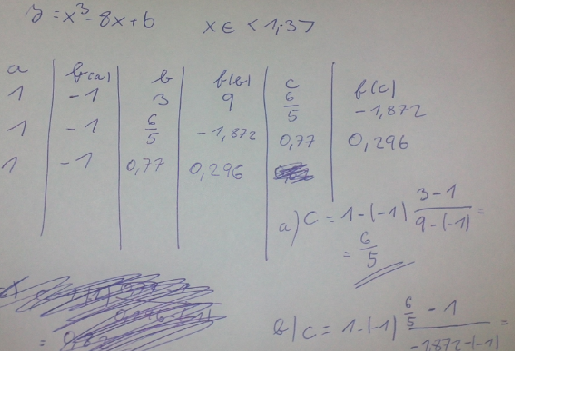 y = x³ - 8x + 6 x ∈ <1,3>
a f(a) b f(b) c f(c)
1 -1 3 9 6/5 -1,872
1 -1 6/5 -1,872 0,77 0,296
1 -1 0,77 0,296
a) c = 1 - (-1) 3-1 / 9-(-1) =
= 6/5
b) c = 1 - (-1) 6/5 - 1 / -1,872-(-1) =